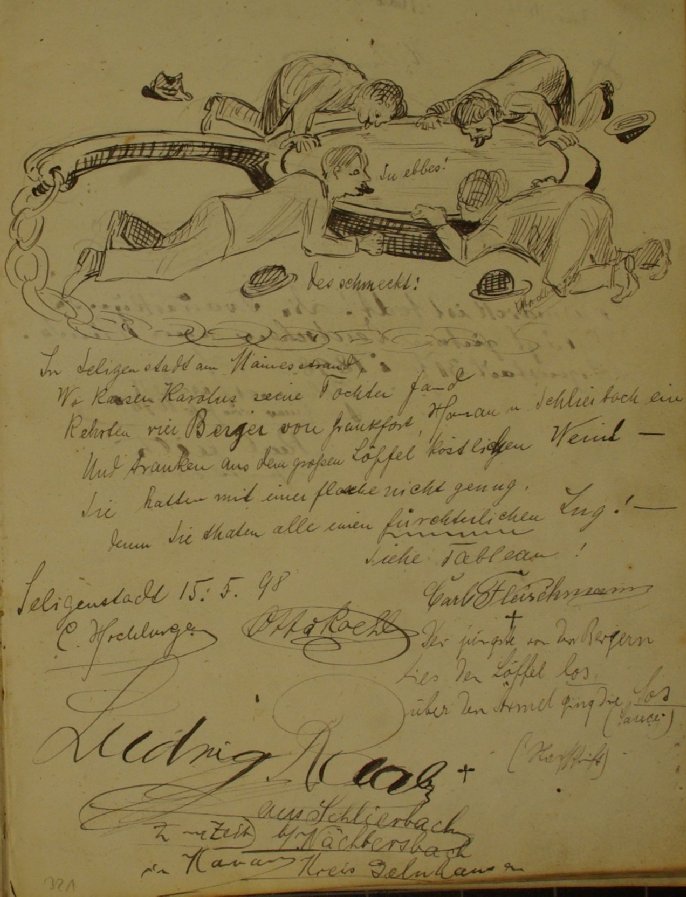 Du ebbes!
des schmeckt!
In Seligenstadt am Mainesstrand
Wo Kaiser Karolus seine Tochter fand
Kehrten vier Berger von Frankfort, Hanau u Schlierbach ein
Und tranken aus dem großen Löffel köstlichen Weins —
Sie hatten mit einer flasche nicht genug.
denn Sie thaten alle einen fürchterlichen Zug! —
Siehe Tableau!
Seligenstadt 15. 5. 98
Carl Fleischmann
C. Hochburger
Otto Koehl
Der jüngste von den Bergern
lies den Löffel los.
über den Ärmel ging die Sos
(Sauce)
Ludwig
aus Schlierbach
z. Zeit b/Wächtersbach
in Hanau Kreis Gelnhausen
321